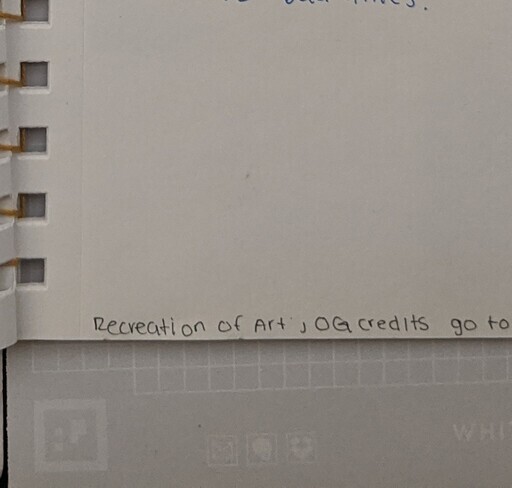 Recreation of Art, OG credits go to
WHI